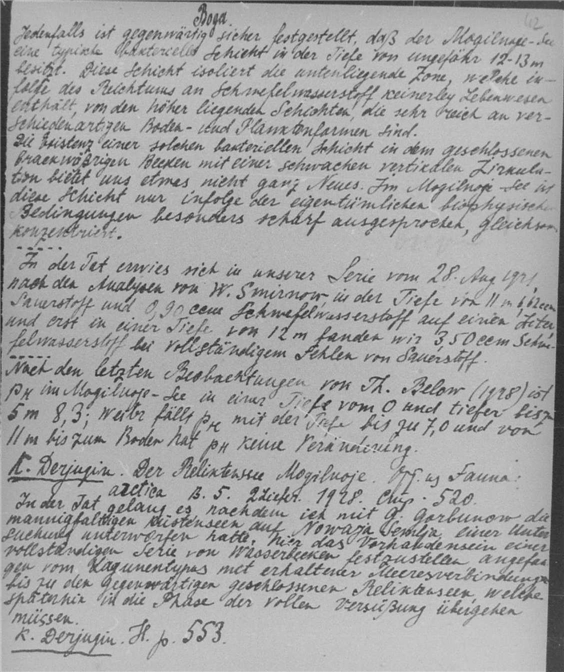 Вода.
62
Jedenfalls ist gegenwärtig sicher festgestellt, daß der Mogilnoje-See
eine typische bakterielle Schicht in der Tiefe von ungefähr 12-13 m
besitzt. Diese Schicht isoliert die untenliegende Zone, welche in-
folge des Reichtums an Schwefelwasserstoff keinerley Lebenwesen
enthält, von den höher liegenden Schichten, die sehr reich an ver-
schiedenartigen Boden- und Planktonformen sind.
Die Existenz einer solchen bakteriellen Schicht in dem geschlossenen
Becken mit einer schwachen vertikalen Zirkula-
tion bietet uns etwas nicht ganz Neues. Im Mogilnoje-See ist
diese Schicht nur infolge der eigentümlichen biophysischen
Bedingungen besonders scharf ausgesprochen, gleichsam
konzentriert.
In der Tat erwies sich in unserer Serie vom 28. Aug 1921
nach den Analysen von W. Smirnow in der Tiefe von 11 m ccm
Sauerstoff und 0,90 ccm Schwefelwasserstoff auf einen Liter
und erst in einer Tiefe von 12 m fanden wir 3,50 ccm Schwe-
felwasserstoff bei vollständigem Fehlen von Sauerstoff.
Nach den letzten Beobachtungen von Th. Below (1928) ist
pH im Mogilnoje-See in einer Tiefe vom 0 und tiefer bis zu
5 m 8,3; weiter fällt pH mit der Tiefe bis zu 7,0 und von
11 m bis zum Boden hat pH keine Veränderung.
K. Derjugin. Der Reliktensee Mogilnoje. Fauna
arctica B. 5. 2 Lief. 1928. стр. 520.
In der Tat gelang es, nachdem ich mit G. Gorbunow die
mannigfaltigen Küstenseen auf Nowaja Semlja einer Unter-
suchung unterworfen hatte, mir das Vorhandensein einer
vollständigen Serie von Wasserbecken festzustellen angefan-
gen vom Lagunentypus mit erhaltener Meeresverbindung
bis zu den gegenwärtigen geschlossenen Reliktenseen welche
späterhin in die Phase der vollen Versüßung übergehen
müssen.
K. Derjugin. H. p. 553.